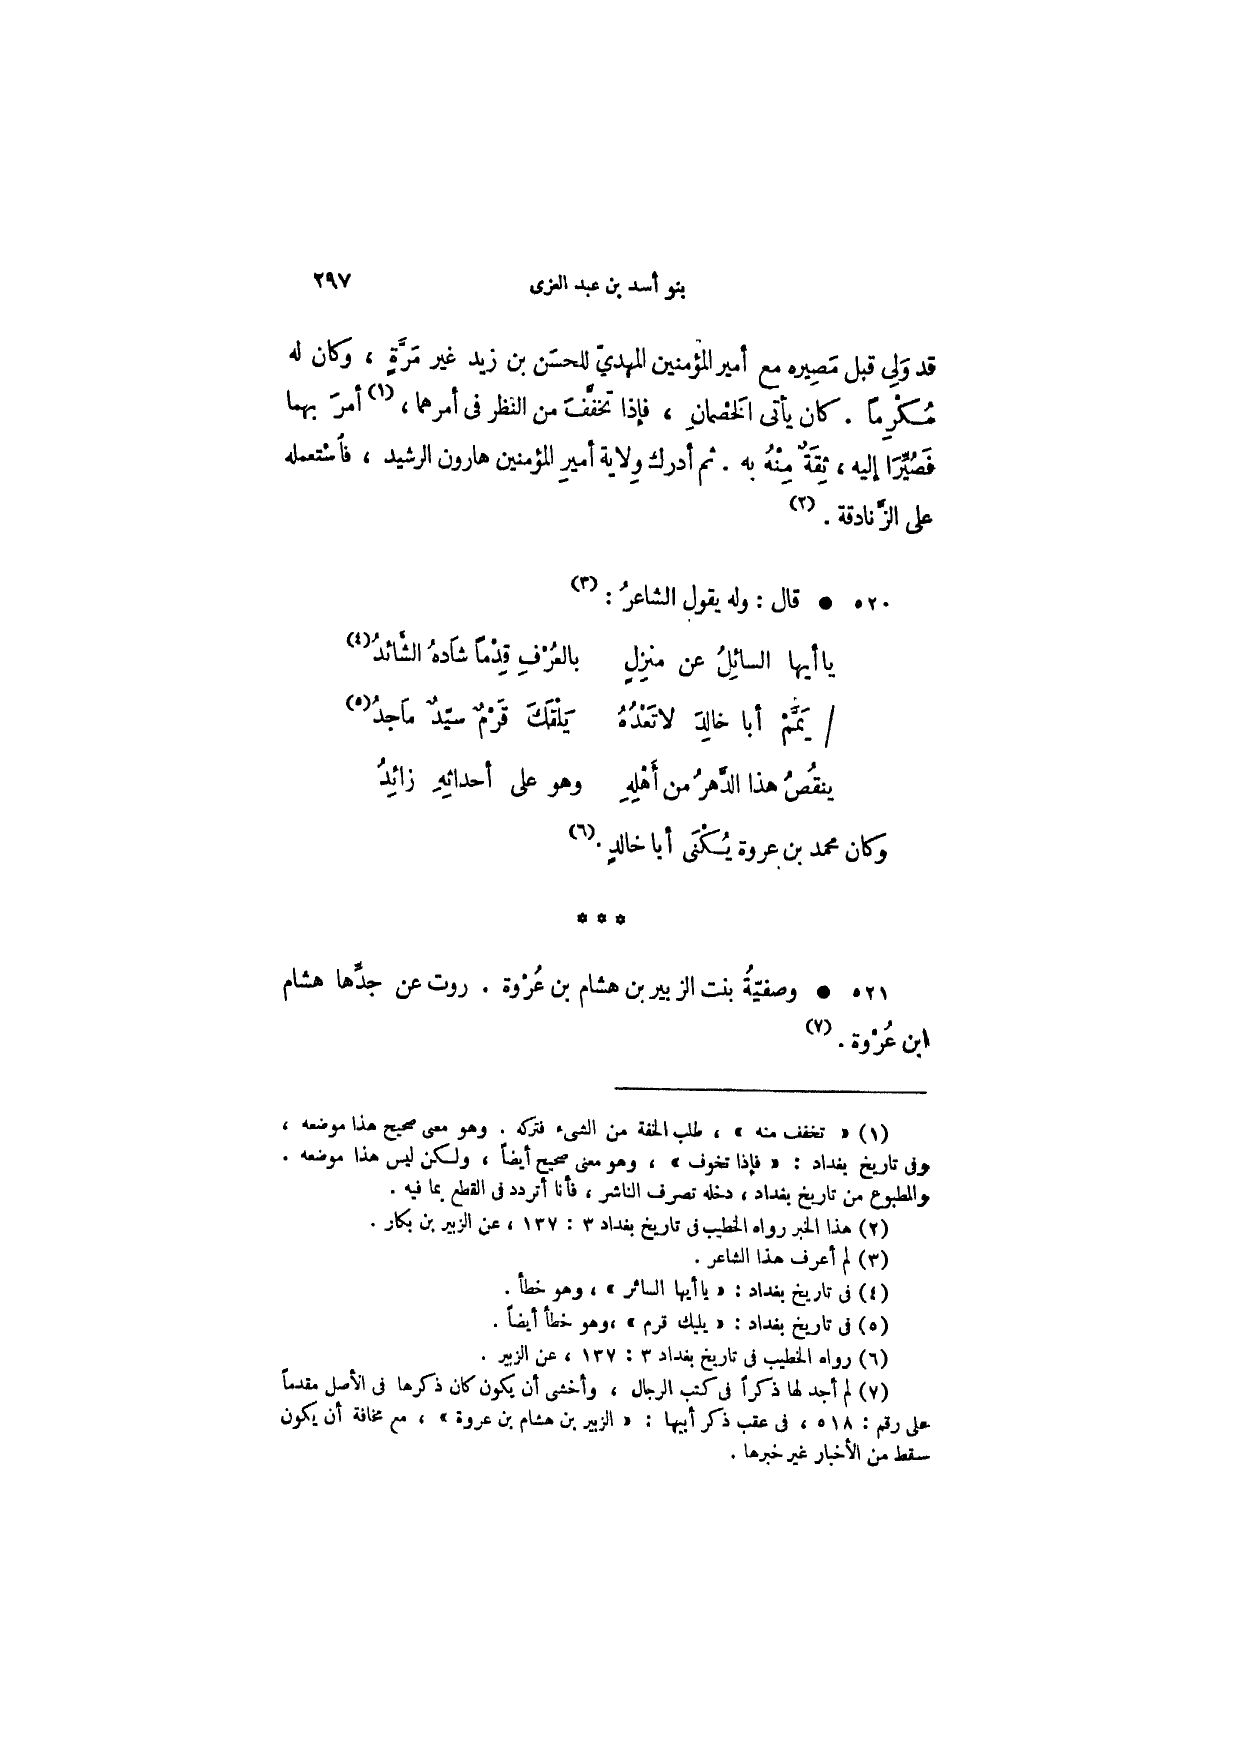 بنو أسد بن عبد العزى ٢٩٧
قد وَلِى قبل مَصِيره مع أمير المؤمنين المهديّ للحسَن بن زيد غير مَرَّةٍ ، وكان له
مُكْرِماً . كان يأتى الخَصْمانِ ، فإذا تخفَّفَ من النظر فى أمرهما، (١) أمرَ بهما
فَصُيِّرَا إليه ، ثِقَةً مِنْهُ به . ثم أدرك وِلاية أميرِ المؤمنين هارون الرشيد ، فاُسْتعمله
على الزَّنادقة . (٢)
٥٢٠ ● قال : وله يقول الشاعرُ : (٣)
ياأيها السائِلُ عن منزِلٍ بالعُرْفِ قِدْماً شادَهُ الشَّائدُ(٤)
/ يَمِّمْ أبا خالدَ لاتَعْدُهُ يَلْقَكَ قَرْمٌ سيّدٌ ماَجدُ(٥)
ينقُصُ هذا الدَّهرُ من أَهْلِهِ وهو على أحداثِهِ زائِدُ
وكان محمد بن عروة يُكْنَى أبا خالدٍ .(٦)
* * *
٥٢١ ● وصفيّةُ بنت الزبير بن هشام بن عُرْوة . روت عن جدِّها هشام
ابن عُرْوة . (٧)
(١) « تخفف منه » ، طلب الخفة من الشىء فتركه . وهو معنى صحيح هذا موضعه ،
وفى تاريخ بغداد : « فإذا تخوف » ، وهو معنى صحيح أيضاً ، ولكن ليس هذا موضعه .
والمطبوع من تاريخ بغداد ، دخله تصرف الناشر ، فأنا أتردد فى القطع بما فيه .
(٢) هذا الخبر رواه الخطيب فى تاريخ بغداد ٣ : ١٣٧ ، عن الزبير بن بكار .
(٣) لم أعرف هذا الشاعر .
(٤) فى تاريخ بغداد : « ياأيها السائر » ، وهو خطأ .
(٥) فى تاريخ بغداد : « يليك قرم » ،وهو خطأ أيضاً .
(٦) رواه الخطيب فى تاريخ بغداد ٣ : ١٣٧ ، عن الزبير .
(٧) لم أجد لها ذكراً فى كتب الرجال ، وأخشى أن يكون كان ذكرها فى الأصل مقدماً
على رقم : ٥١٨ ، فى عقب ذكر أبيها : « الزبير بن هشام بن عروة » ، مع مخافة أن يكون
سقط من الأخبار غير خبرها .